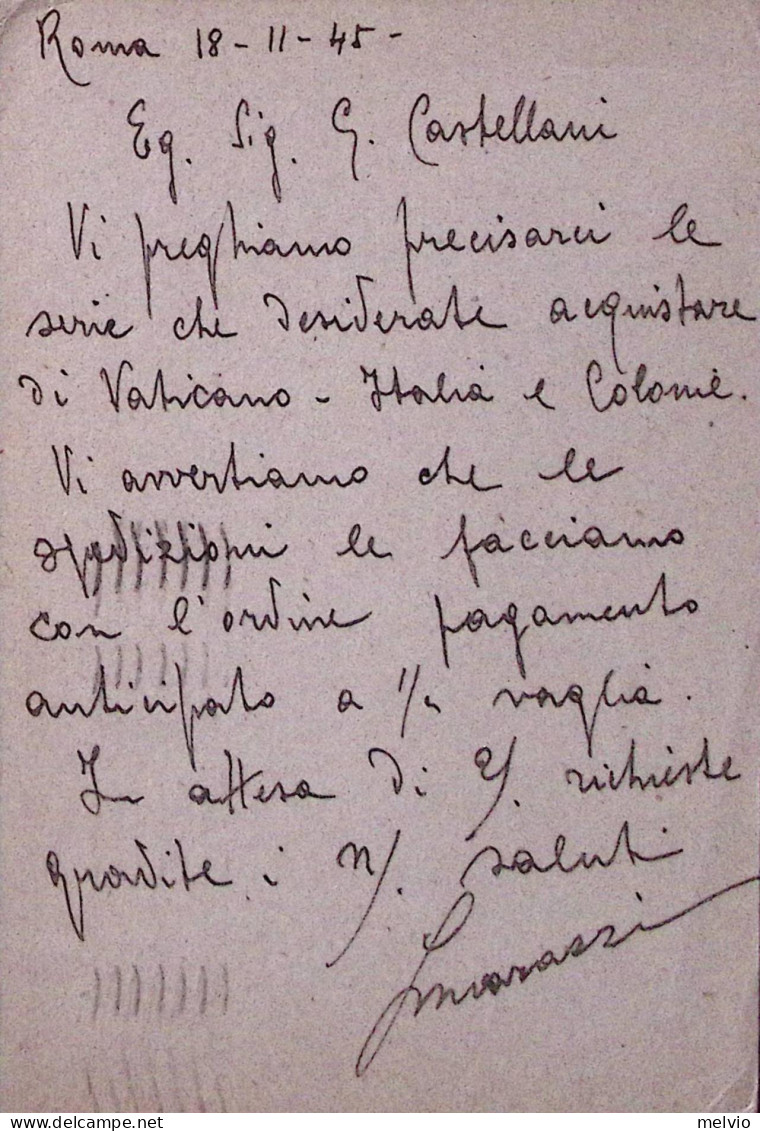 Roma 18-11-45-
Eg. Sig. G. Castellani
Vi preghiamo precisarci le
serie che desiderate acquistare
di Vaticano - Italia e Colonie.
Vi avvertiamo che le
spedizioni le facciamo
con l'ordine pagamento
anticipato a vaglia.
In attesa di richieste
gradite i N/. saluti
melvio